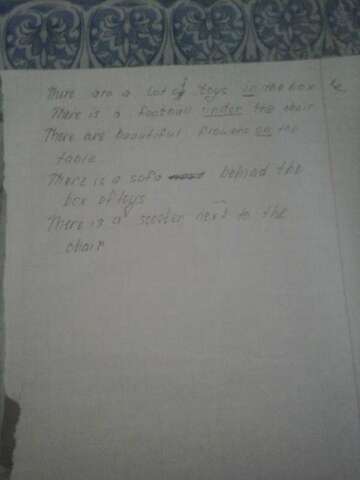 There are a lot of toys in the box
There is a football under the chair
There are beautiful flowers on the
table
There is a sofa behind the
box of toys
There is a scooter next to the
chair